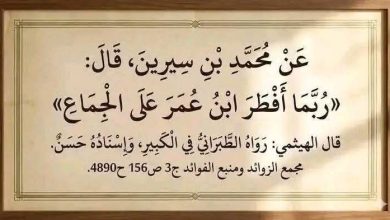 عَنْ مُحَمَّدِ بْنِ سِيرِينَ، قَالَ:
«رُبَّمَا أَفْطَرَ ابْنُ عُمَرَ عَلَى الْجِمَاعِ»
قال الهيثمي: رَوَاهُ الطَّبَرَانِيُّ فِي الْكَبِيرِ، وَإِسْنَادُهُ حَسَنٌ.
مجمع الزوائد ومنبع الفوائد ج3 ص156 ح4890.